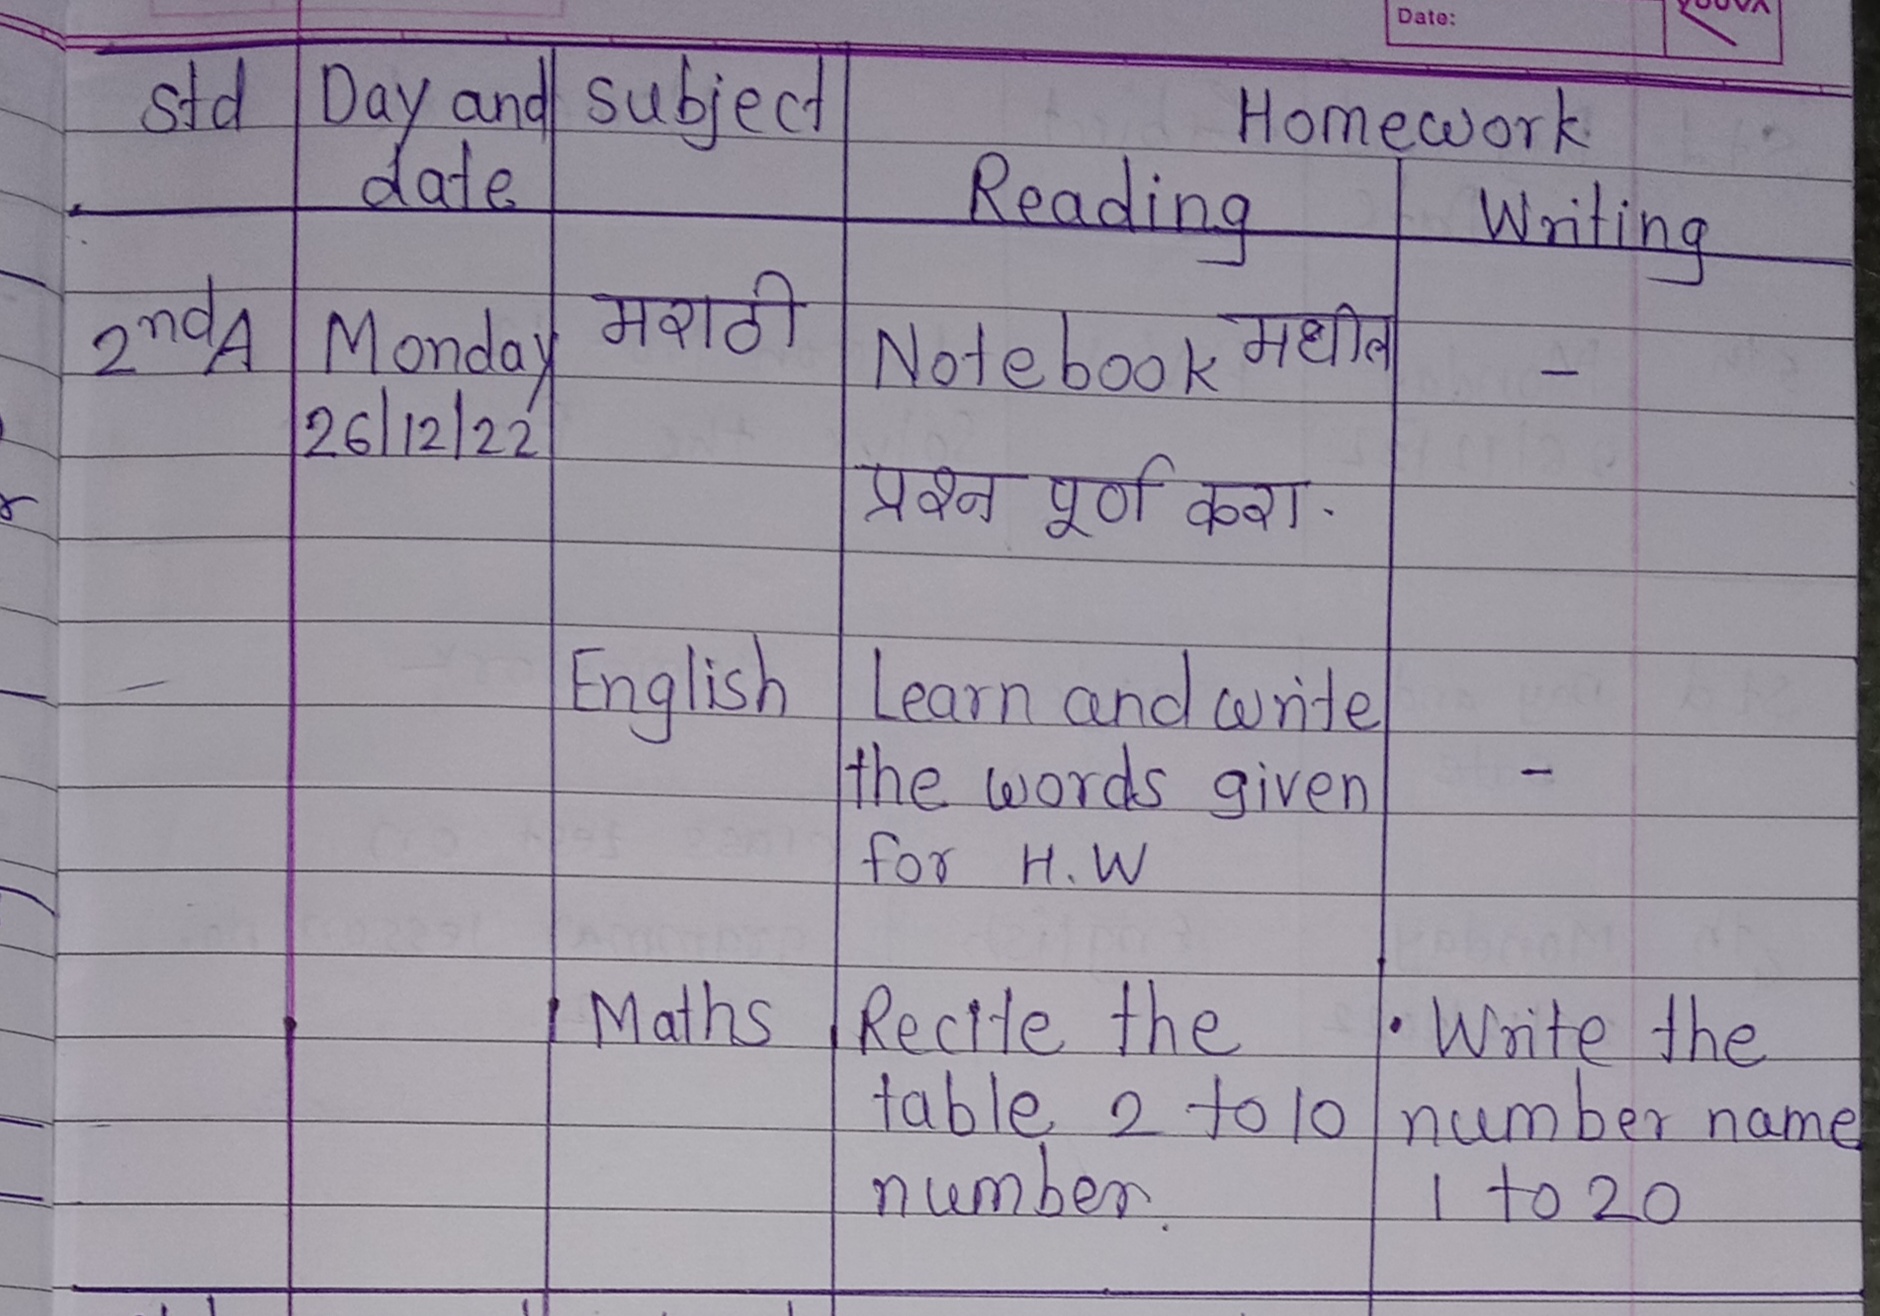 Date:
std Day and subject Homework
date Reading Writing
2nd A Monday मराठी Notebook मधील -
26/12/22
प्रश्न पूर्ण करा.
English Learn and write
the words given -
for H.W
Maths Recite the • Write the
table 2 to 10 number name
number. 1 to 20